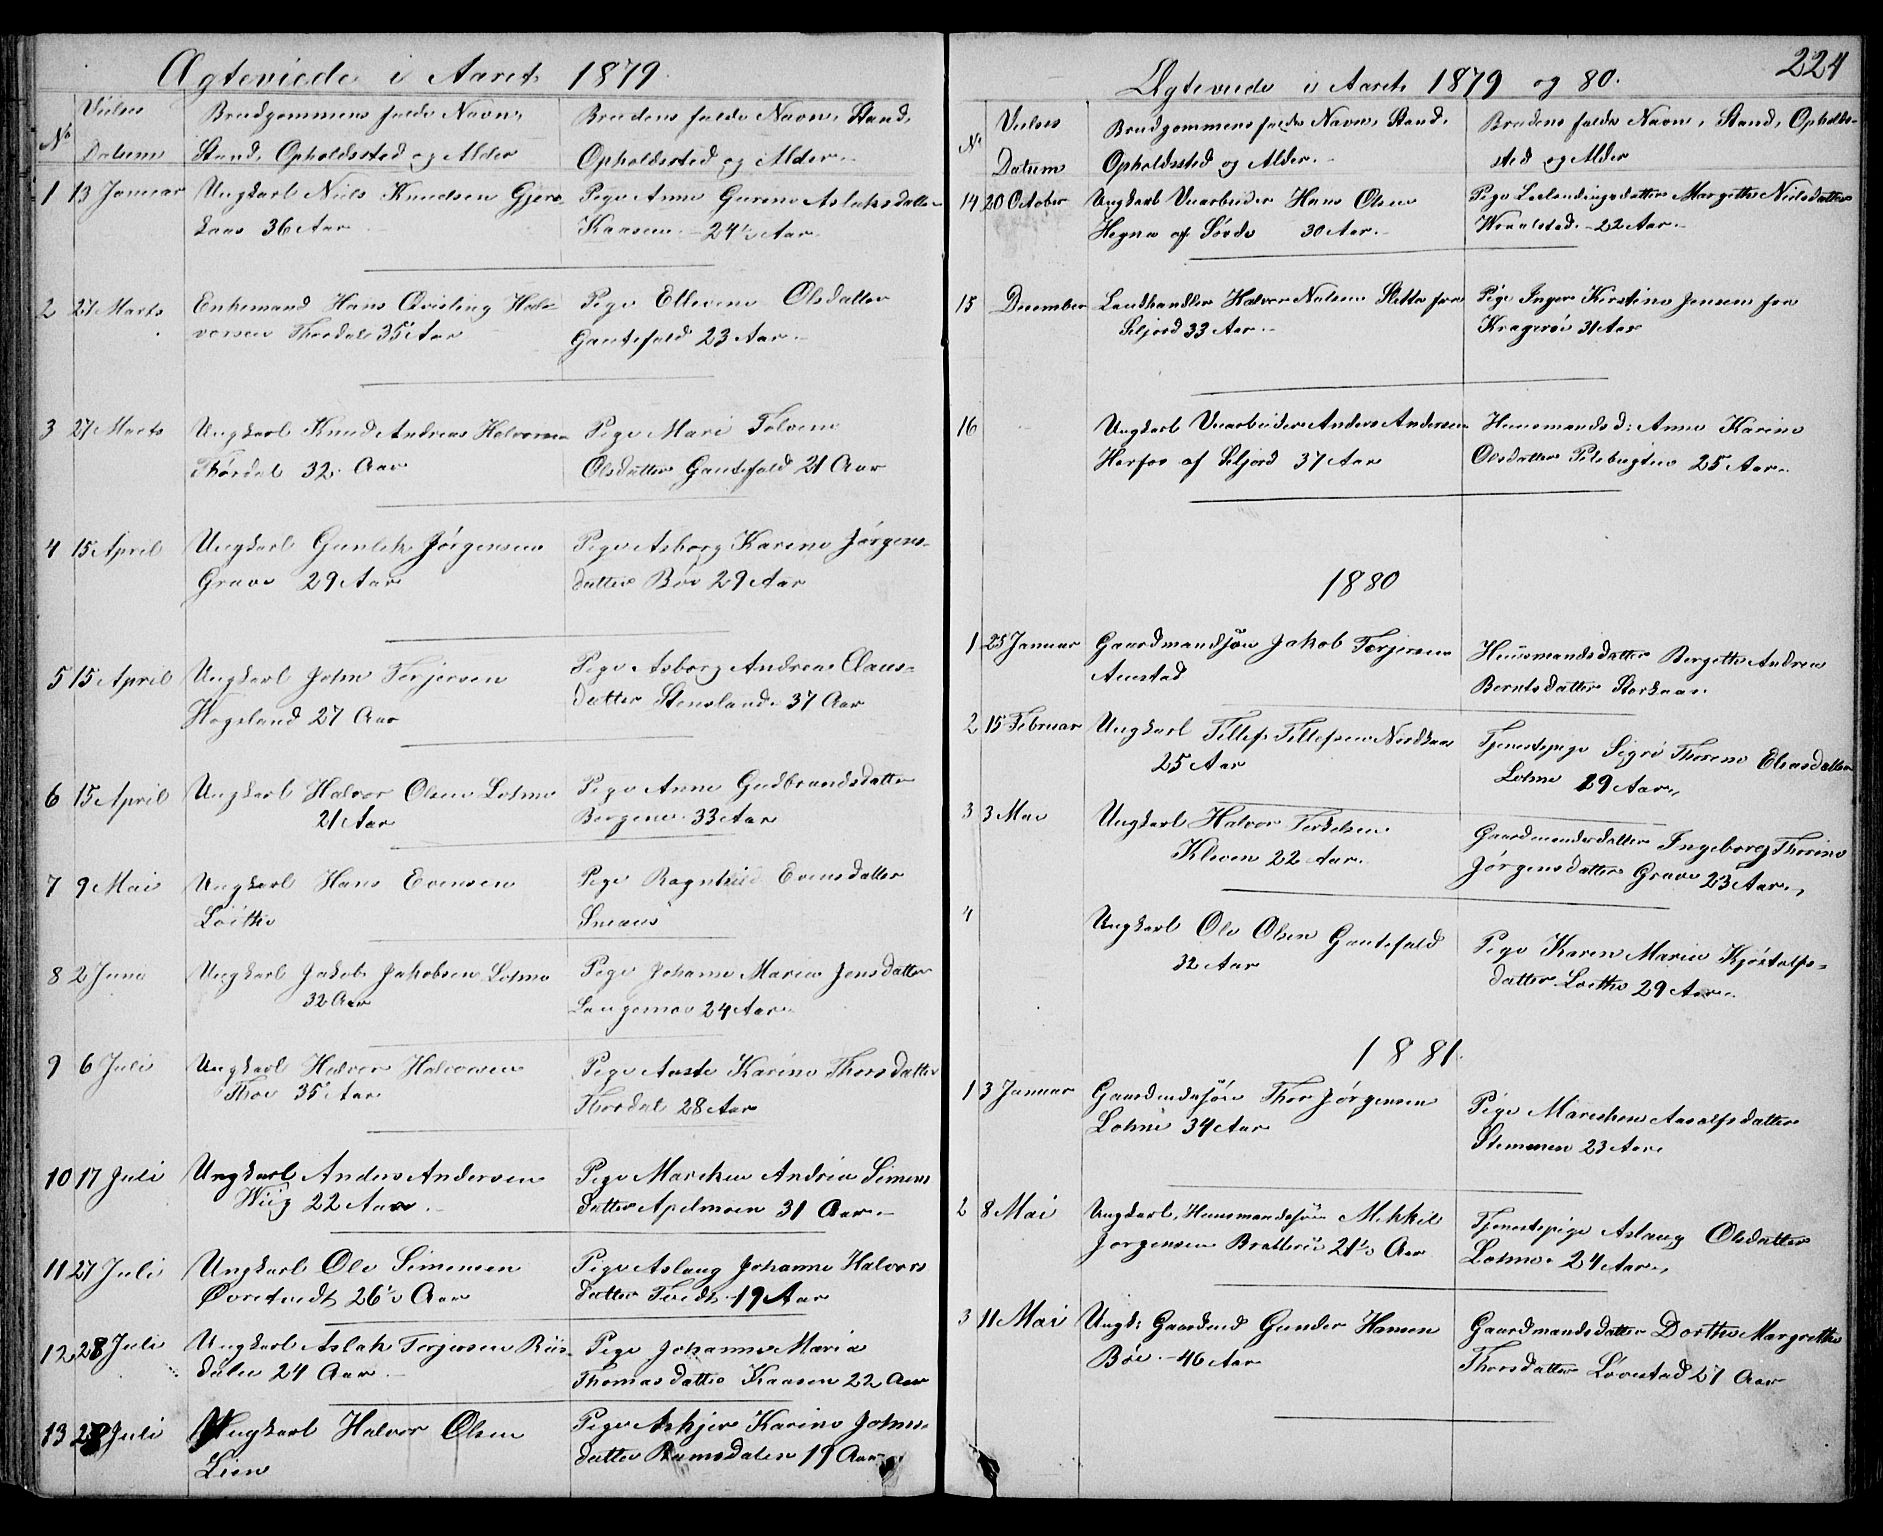 Ægteviede i Aaret 1879.
No
Vielses
Datum
Brudgommens fulde Navn,
Stand, Opholdssted og Alder
Brudens fulde Navn, Stand,
Opholdssted og Alder.
1 13 Januar Ungkarl Niels Knudsen Gjers-
kaas 36 Aar
Pige Anne Gurine Aslaksdatter
Kaasen. 24½ Aar.
2 27 Marts Enkemand Hans Qvisling Hal-
vorsen Thordal 35 Aar
Pige Ellevine Olsdatter
Gautefald 23 Aar.
3 27 Marts Ungkarl Knud Andreas Halvorsen
Thordal 32 Aar
Pige Mari Tolvine
Olsdatter Gautefald 21 Aar
4 15 April Ungkarl Gunlek Jørgensen
Grave 29 Aar
Pige Asborg Karine Jørgens-
datter Bøe 29 Aar
5 15 April Ungkarl John Terjersen
Hogsland 27 Aar
Pige Asborg Andrea Claus-
datter Stensland. 37 Aar
6 15 April Ungkarl Halvor Olsen Lohne
21 Aar
Pige Anne Gudbrandsdatter
Bergene. 33 Aar
7 9 Mai Ungkarl Hans Evensen
Løithe
Pige Ragnhild Evensdatter
8 2 Juni Ungkarl Jakob Jakobsen Lohne
32 Aar
Pige Johanne Maria Jensdatter
Langemoe 24 Aar.
9 6 Juli Ungkarl Halvor Halvorsen
Thoe 35 Aar
Pige Aaste Karine Thorsdatter
Thordal 28 Aar
10 17 Juli Ungkarl Anders Andersen
Wiig 22 Aar.
Pige Mareken Andrea Simens
datter Apelmoen 31 Aar.
11 27 Juli Ungkarl Ole Simensen
Øvretvedt 26½ Aar
Pige Aslaug Johanne Halvors
datter Tvedt. 19 Aar
12 28 Juli Ungkarl Aslak Terjersen Riis-
dalen 24 Aar
Pige Johanne Maria
Thomasdatter Kaasen 22 Aar
13 28 Juli Ungkarl Halvor Olsen
Lien
Pige Askjer Karine Johns-
datter Ramsdalen 19 Aar
224
Ægteviede i Aaret 1879 og 80.
No
Vielses
Datum
Brudgommens fulde Navn, Stand,
Opholdssted og Alder.
Brudens fulde Navn, Stand, Opholds-
sted og Alder
14 20 October Ungkarl Veiarbeider Hans Olsen
Hegna af Saude 30 Aar.
Pige Leilendingsdatter Margethe Nielsdatter
Wraalstad. 22 Aar.
15 December Landhandler Halvor Nielsen Sletta fra
Seljord 33 Aar.
Pige Inger Kirstine Jensen fra
Kragerøe 31 Aar
16 Ungkarl Veiarbeider Anders Andersen
Herfos af Seljord 37 Aar
Huusmandsd: Anne Karine
Olsdatter Pilebugten 25 Aar.
1880
1 25 Januar Gaardmandsøn Jakob Terjersen
Austad
Huusmandsdatter Bergethe Andrea
Berntsdatter Storkaas.
2 15 Februar Ungkarl Tellef Tellefsen Nordkaas
25 Aar
Tjenestepige Sigri Thorine Eliasdatter
Lohne 29 Aar.
3 3 Mai Ungkarl Halvor Terkelsen
Kleven 22 Aar.
Gaardmandsdatter Ingeborg Thorine
Jørgensdatter Grave 23 Aar.
4 Ungkarl Ole Olsen Gautefald
32 Aar
Pige Karen Marie Kjøstolfs-
datter Løithe 29 Aar.
1881.
1 3 Januar Thor Jørgensen
Lohne 34 Aar
Pige Mareken Aasolfsdatter
Stemmen 23 Aar.
2 8 Mai Ungkarl, Huusmandssøn Mikkel
Jørgensen Bratterøe 21½ Aar
Tjenestepige Aslaug Olsdatter
Lohne. 24 Aar.
3 11 Mai Ungk: Gaardmd Gunder Hansen
Bøe. 46 Aar
Gaardmandsdatter Dorthe Margrethe
Thorsdatter Lövestad 27 Aar